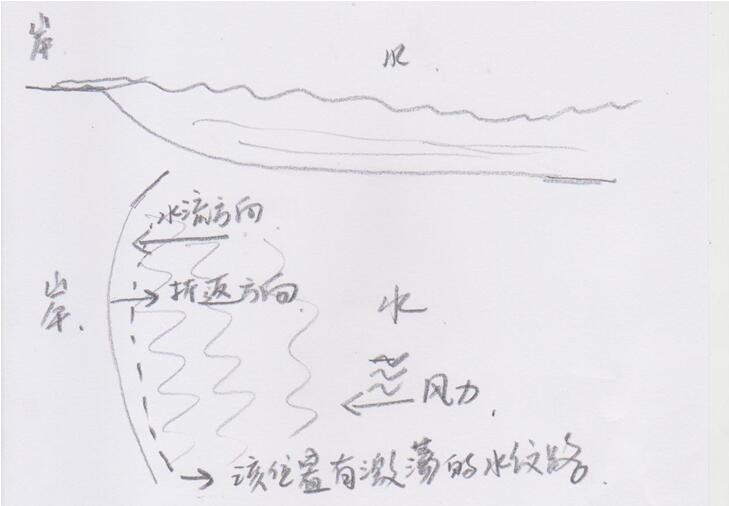 岸
水
水流方向
折返方向
岸.
水
风力.
该位置有激荡的水纹路.